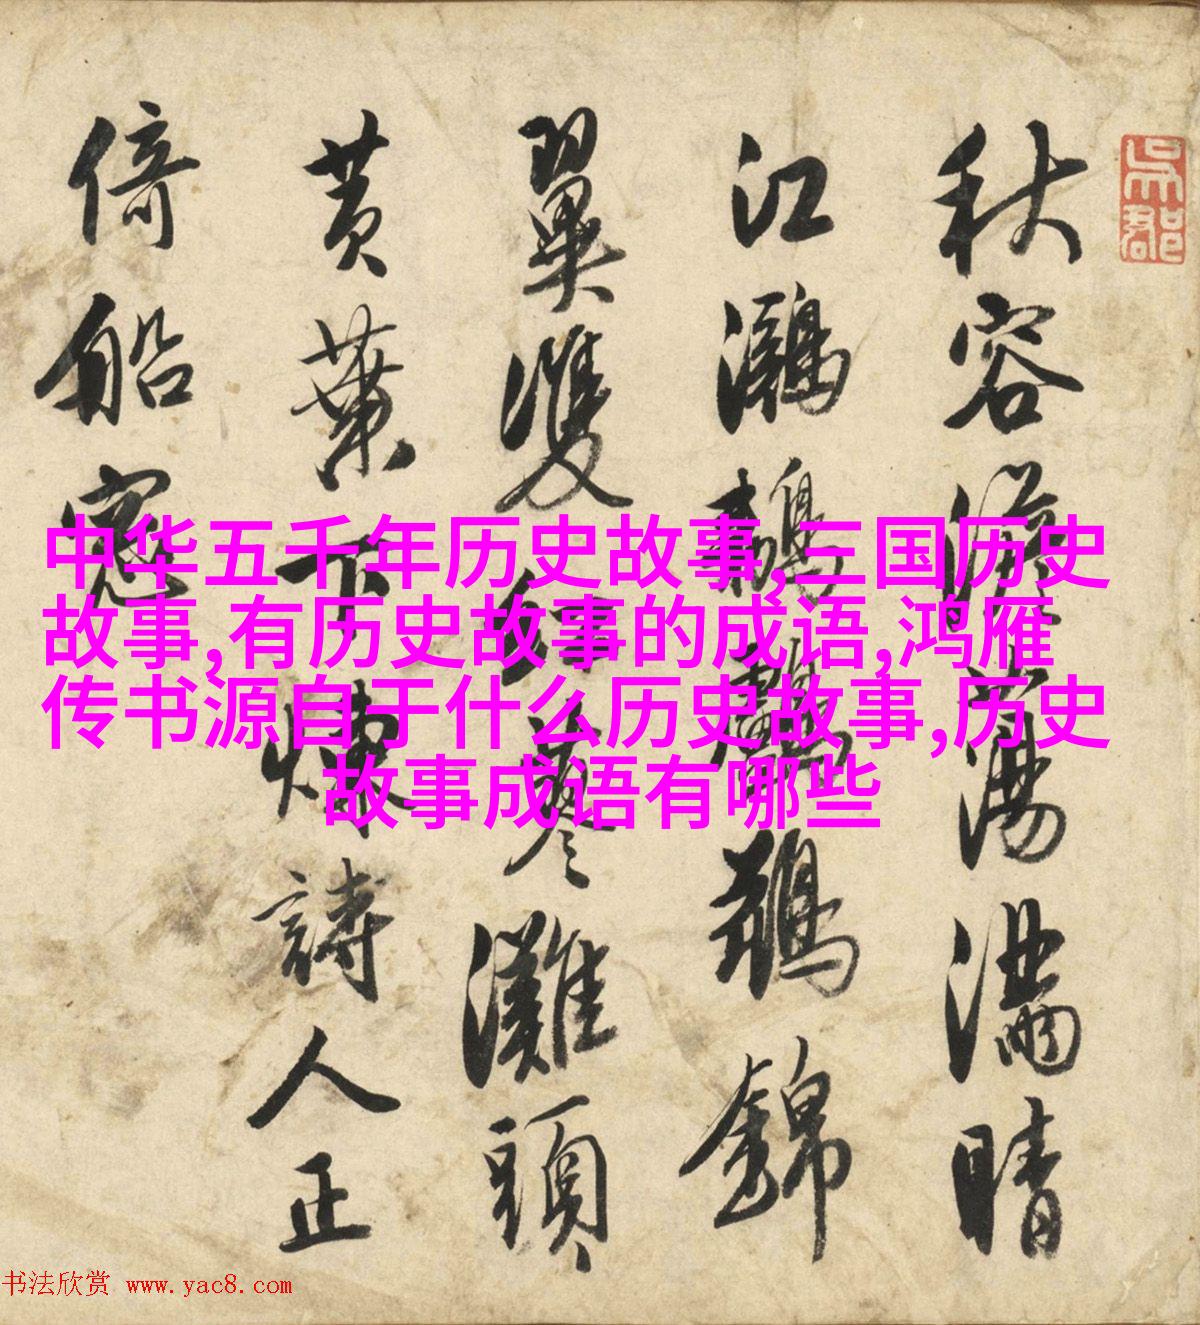 吳郡
秋容澹蕩滿晴
江鸂鶒鸊鵜錦
翼雙紅蓼灘頭
黃葉下煉詩人正
倚船窓
中华五千年历史故事,三国历史
故事,有历史故事的成语,鸿雁
传书源自于什么历史故事,历史
故事成语有哪些
书法欣赏 www.yac8.com